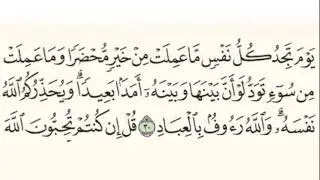 يَوْمَ تَجِدُ كُلُّ نَفْسٍ مَّا عَمِلَتْ مِنْ خَيْرٍ مُّحْضَرًا وَمَا عَمِلَتْ
مِن سُوٓءٍ تَوَدُّ لَوْ أَنَّ بَيْنَهَا وَبَيْنَهُۥٓ أَمَدًۢا بَعِيدًا ۗ وَيُحَذِّرُكُمُ ٱللَّهُ
نَفْسَهُۥ ۗ وَٱللَّهُ رَءُوفٌۢ بِٱلْعِبَادِ ٣٠ قُلْ إِن كُنتُمْ تُحِبُّونَ ٱللَّهَ